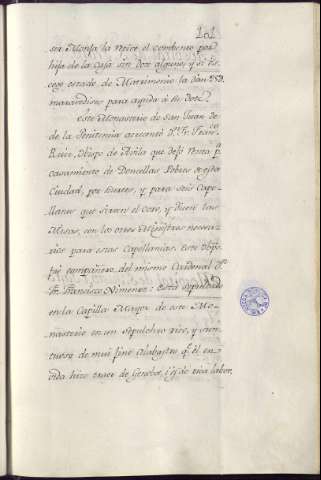 101
ser Monja la recive el combento por
hija de la Casa sin Dote alguno, y si es-
coge estado de Matrimonio la dan
maravedises para ayuda à su Dote.
Este Monasterio de San Juan de
de la Penitencia acrecentó D.n Fr. Fran.co
Ruiz, Obispo de Avila que dejó renta p.a
casamiento de Doncellas Pobres de esta
Ciudad, por suertes, y para seis Cape-
llanes que sirven el Coro, y dicen las
Misas, con los otros Ministros necesa-
rios para estas Capellanias. Este Obis-
po fué compañero del mismo Cardenal D.n
Fr. Francisco Ximenez: está sepultado
en la Capilla Mayor de este Mo-
nasterio en un sepulchro rico, y sump-
tuoso de mui fino Alabastro q.e él en
vida hizo traer de Genova, y es de rica labor.